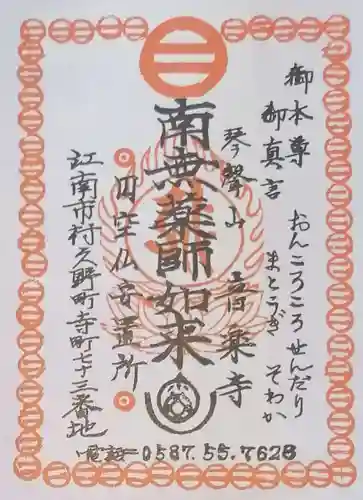 御本尊
御真言
おんころころ せんだり
まとうぎ そわか
琴聲山 音楽寺
南無薬師如来
円空仏安置所
江南市村久野町寺町七十三番地
電話＝0587.55.7628